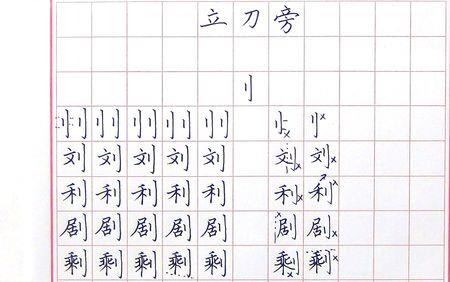 立刀旁
刂
刂 刂 刂 刂 刂 刂 刂
刘 刘 刘 刘 刘 刘 刘
利 利 利 利 利 利 利
剧 剧 剧 剧 剧 剧 剧
剩 剩 剩 剩 剩 剩 剩